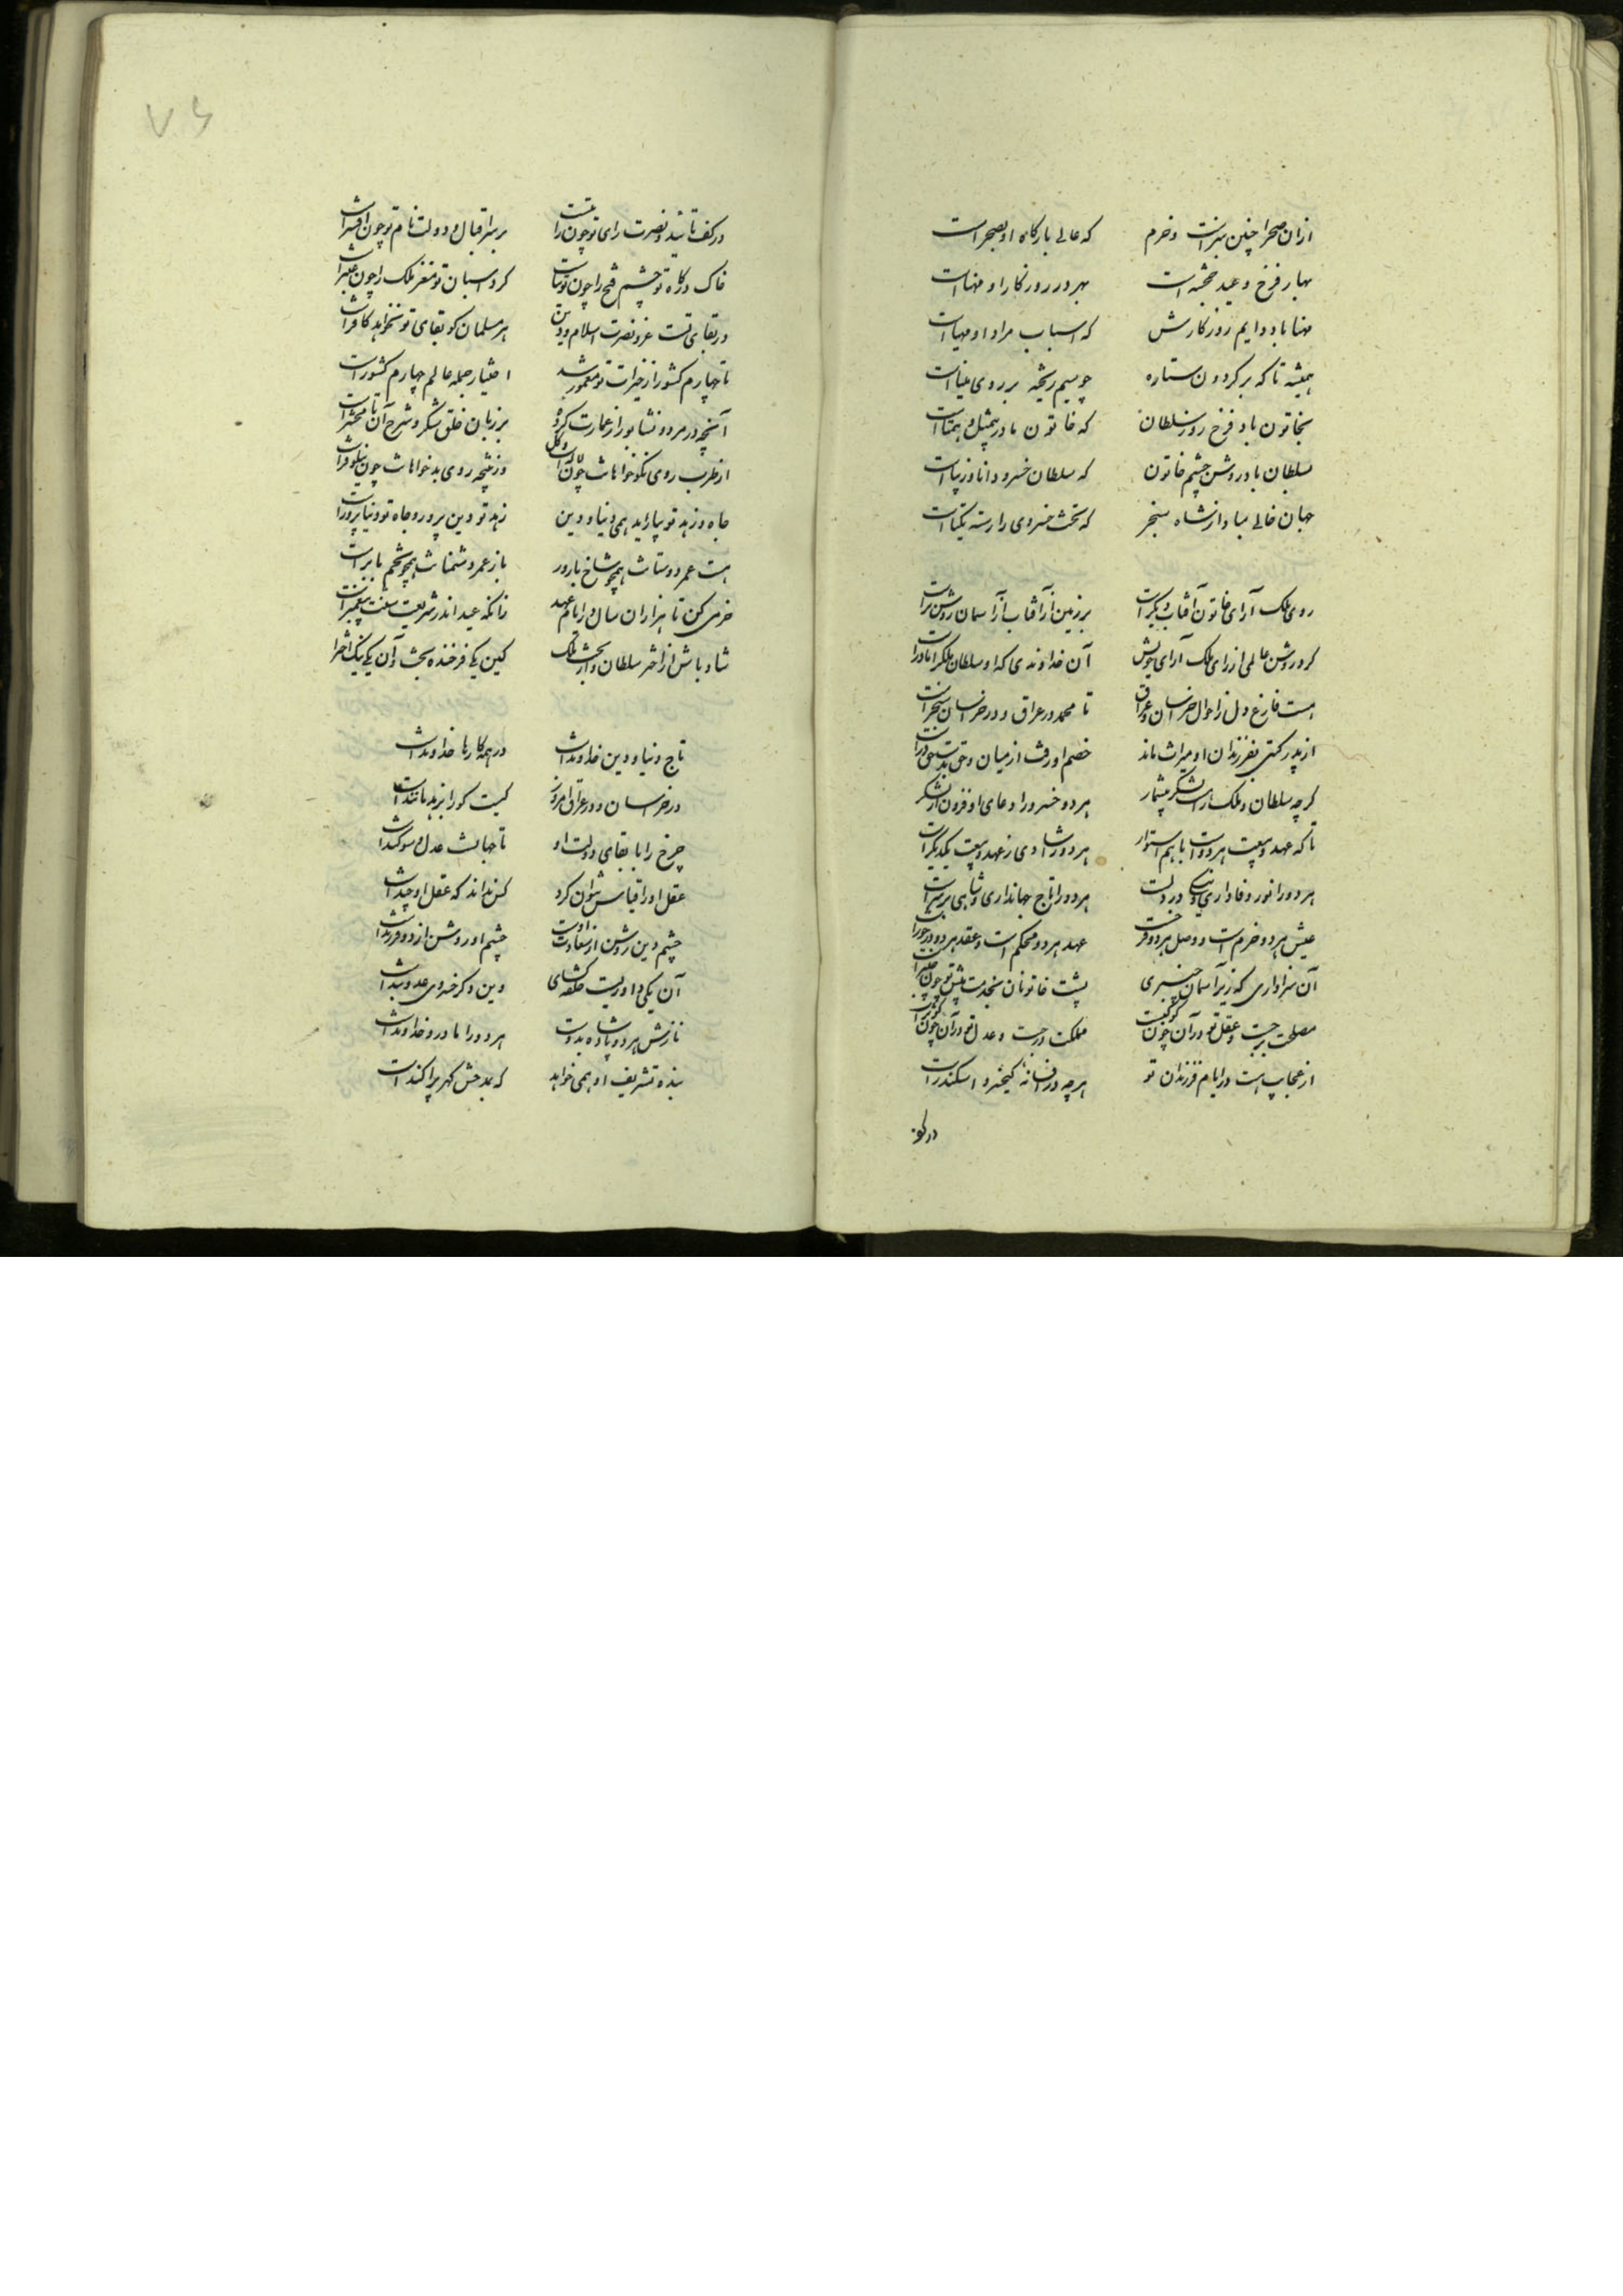 ازان صحرا چنین سبزست و خرم که عالی بارگاه او بصحراست
بهار فرخ و عید خجسته است بهر دو روزگار او مهناست
مهنا باد دایم روزگارش که اسباب مراد او مهیاست
همیشه تا که بر گردون ستاره چو سیم ریخته بر روی میناست
بخاتون باد فرخ روز سلطان که خاتون مادر بیمثل و همتاست
بسلطان باد روشن چشم خاتون که سلطان خسرو دانا و زیباست
جهان خالی مباد از شاه سنجر که تخت خسروی آراسته یکتاست
روی ملک آرای خاتون آفتاب دیگرست بر زمین از آفتاب آسمان روشن ترست
کرد روشن عالمی از رای ملک آرای خویش آن خداوندی که او سلطان ملک را مادرست
هست فارغ دل ز احوال خراسان و عراق تا محمد در عراق و در خراسان سنجرست
از پدر گیتی بفرزندان او میراث ماند خصم اورفت از میان و حق بدست حق ورست
گرچه سلطان و ملک را هست لشکر بیشمار هر دو خسرو را دعای او فزون از لشکر
تا که عهد و بیعت هر دو است با هم استوار هر دو را شادی ز عهد و بیعت یکدیگرست
هر دو را نور وفاداری و نیکی در دلست هر دو را تاج جهانداری و شاهی بر سرست
عیش هر دو خرم است و وصل هر دو فرخست عهد هر دو محکم است و عقد هر دو در خورست
آن سزاواری که زیر آسمان چنبری پشت خاتونان بخدمت پیش تو چون چنبرست
مصلحت برجیست و عقل تو در آن چون کوکبیست مملکت درجیست و عدل تو در آن چون گوهرست
از عجایب هست در ایام فرزندان تو هر چه در افسانه کیخسرو و اسکندرست
در کف
در کف تأیید و نصرت رای تو چون رایتست بر سر اقبال و دولت نام تو چون افسرست
خاک درگاه تو چشم فتح را چون توتیاست گرد اسبان تو مغز ملک را چون عنبرست
در بقای تست عز و نصرت اسلام و دین هر مسلمان کو بقای تو نخواهد کافرست
تا چهارم کشور از خیرات تو معمور شد اختیار جمله عالم چهارم کشورست
آنچه در مرو و نشابور از عمارت کرده بر زبان خلق شکر و شرح آن تا محشرست
از طرب روی نکوخواهانت چون لاله و گل است وز تپنچه روی بدخواهانت چون نیلوفرست
جاه و زهد تو بیاراید همی دنیا و دین زهد تو دین پرور و جاه تو دنیا پرورست
هست عمر دوستانت همچو شاخ بارور باز عمر دشمنانت همچو تخم بابرست
خرمی کن تا هزاران سال در ایام عید زانکه عید اندر شریعت سنت پیغمبرست
شاد باش از اختر سلطان و از بخت ملک کین یکی فرخنده بخت و آن یکی نیک اخترست
تاج دنیا و دین خداوندست در همه کارها خداوندست
در خراسان و در عراق امروز کیست کو را بزهد مانندست
چرخ را با بقای دولت او تا جهانست عدل و سوگندست
عقل او را قیاس نتوان کرد کس نداند که عقل او چندست
چشم دین روشن از سعادت اوست چشم او روشن از دو فرزندست
آن یکی داوریست قلعه گشای وین دگر خسروی عدو بندست
نازش هر دو پادشاه بدوست هر دو را مادر و خداوندست
بنده تشریف او همی خواهد که بمدحش گهر پراکندست